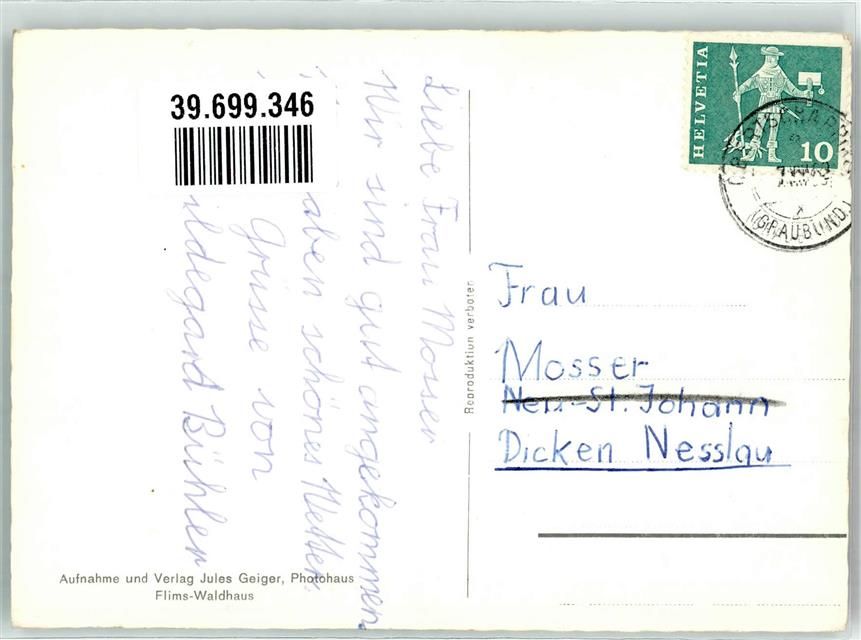 39.699.346
Liebe Frau Mosser
Wir sind gut angekommen
aben schönes Wetter.
Grüsse von
ildegard Bühler
Reproduktion verboten
HELVETIA
10
(GRAUBÜND.)
Frau
Mosser
Neu-St. Johann
Dicken Nesslau
Aufnahme und Verlag Jules Geiger, Photohaus
Flims-Waldhaus